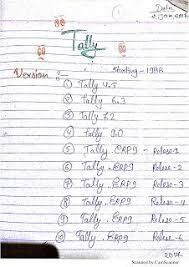 Date
Tally
Version Starting - 1988
① Tally 4.5
② Tally 6.3
③ Tally 7.2
④ Tally 9.0
⑤ Tally .ERP9 Relese-1
⑥ Tally .ERP9 Relese-2
⑦ Tally .ERP9 Relese-3
⑧ Tally .ERP9 Relese-4
⑨ Tally .ERP9 Relese-5
⑩ Tally .ERP9 Relese-6
Scanned by CamScanner